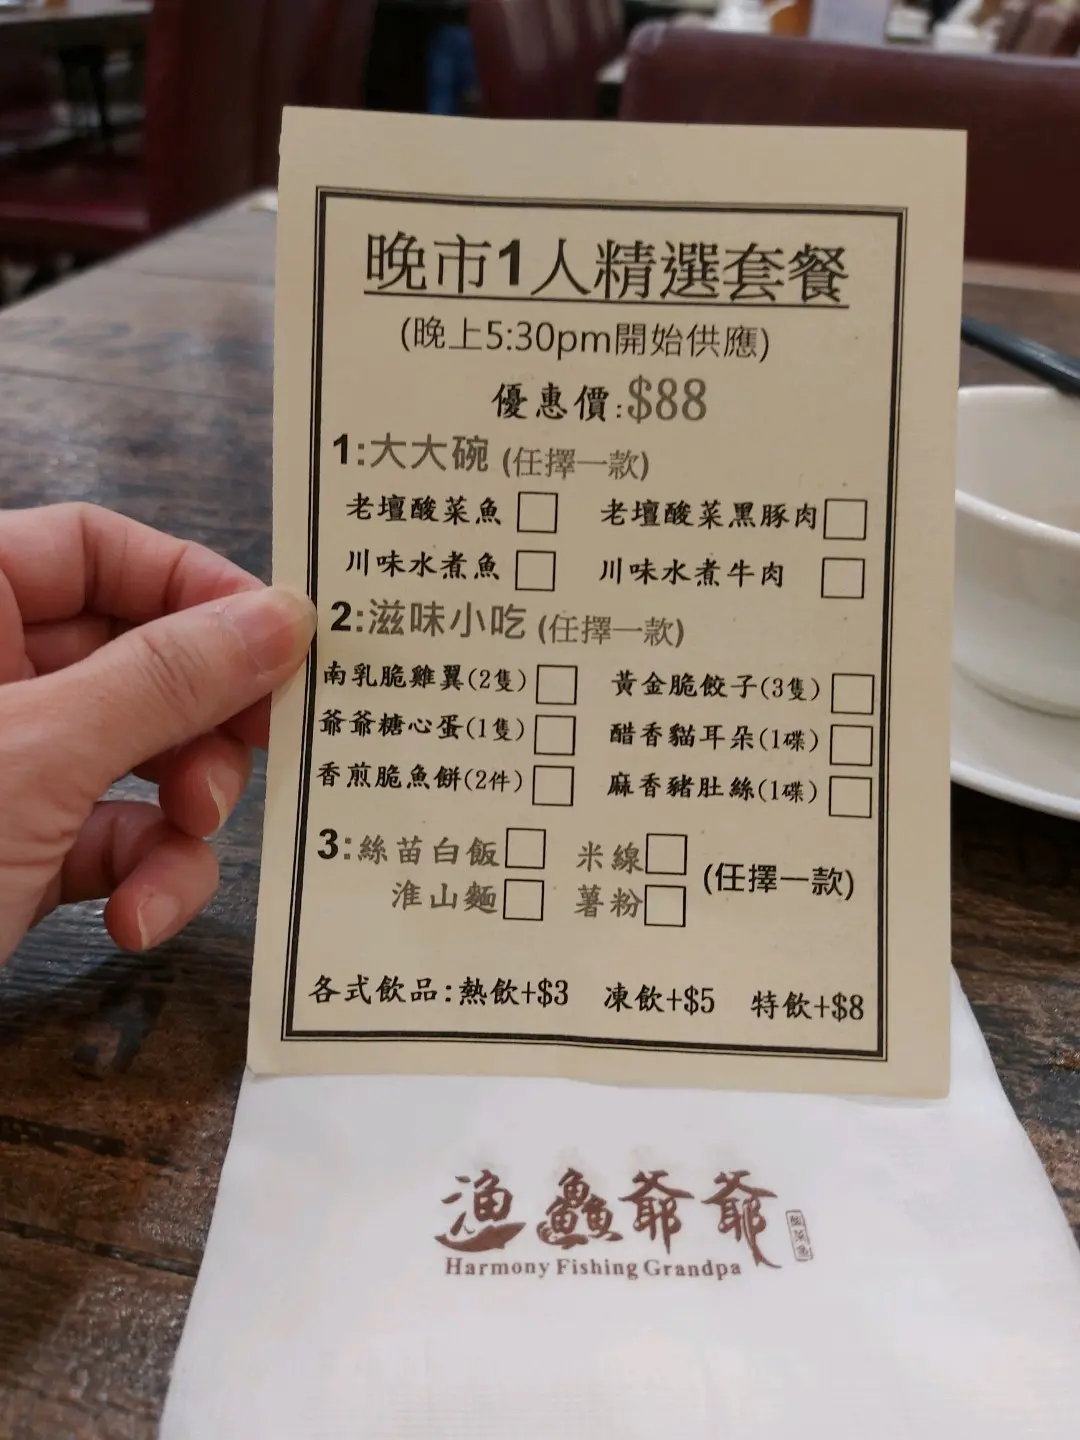 晚市1人精選套餐
(晚上5:30pm開始供應)
優惠價:$88
1:大大碗 (任擇一款)
老壇酸菜魚 老壇酸菜黑豚肉
川味水煮魚 川味水煮牛肉
2:滋味小吃 (任擇一款)
南乳脆雞翼(2隻) 黃金脆餃子(3隻)
爺爺糖心蛋(1隻) 醋香貓耳朵(1碟)
香煎脆魚餅(2件) 麻香豬肚絲(1碟)
3:絲苗白飯 米線 (任擇一款)
淮山麵 薯粉
各式飲品:熱飲+$3 凍飲+$5 特飲+$8
漁鱻爺爺
酸菜魚
Harmony Fishing Grandpa